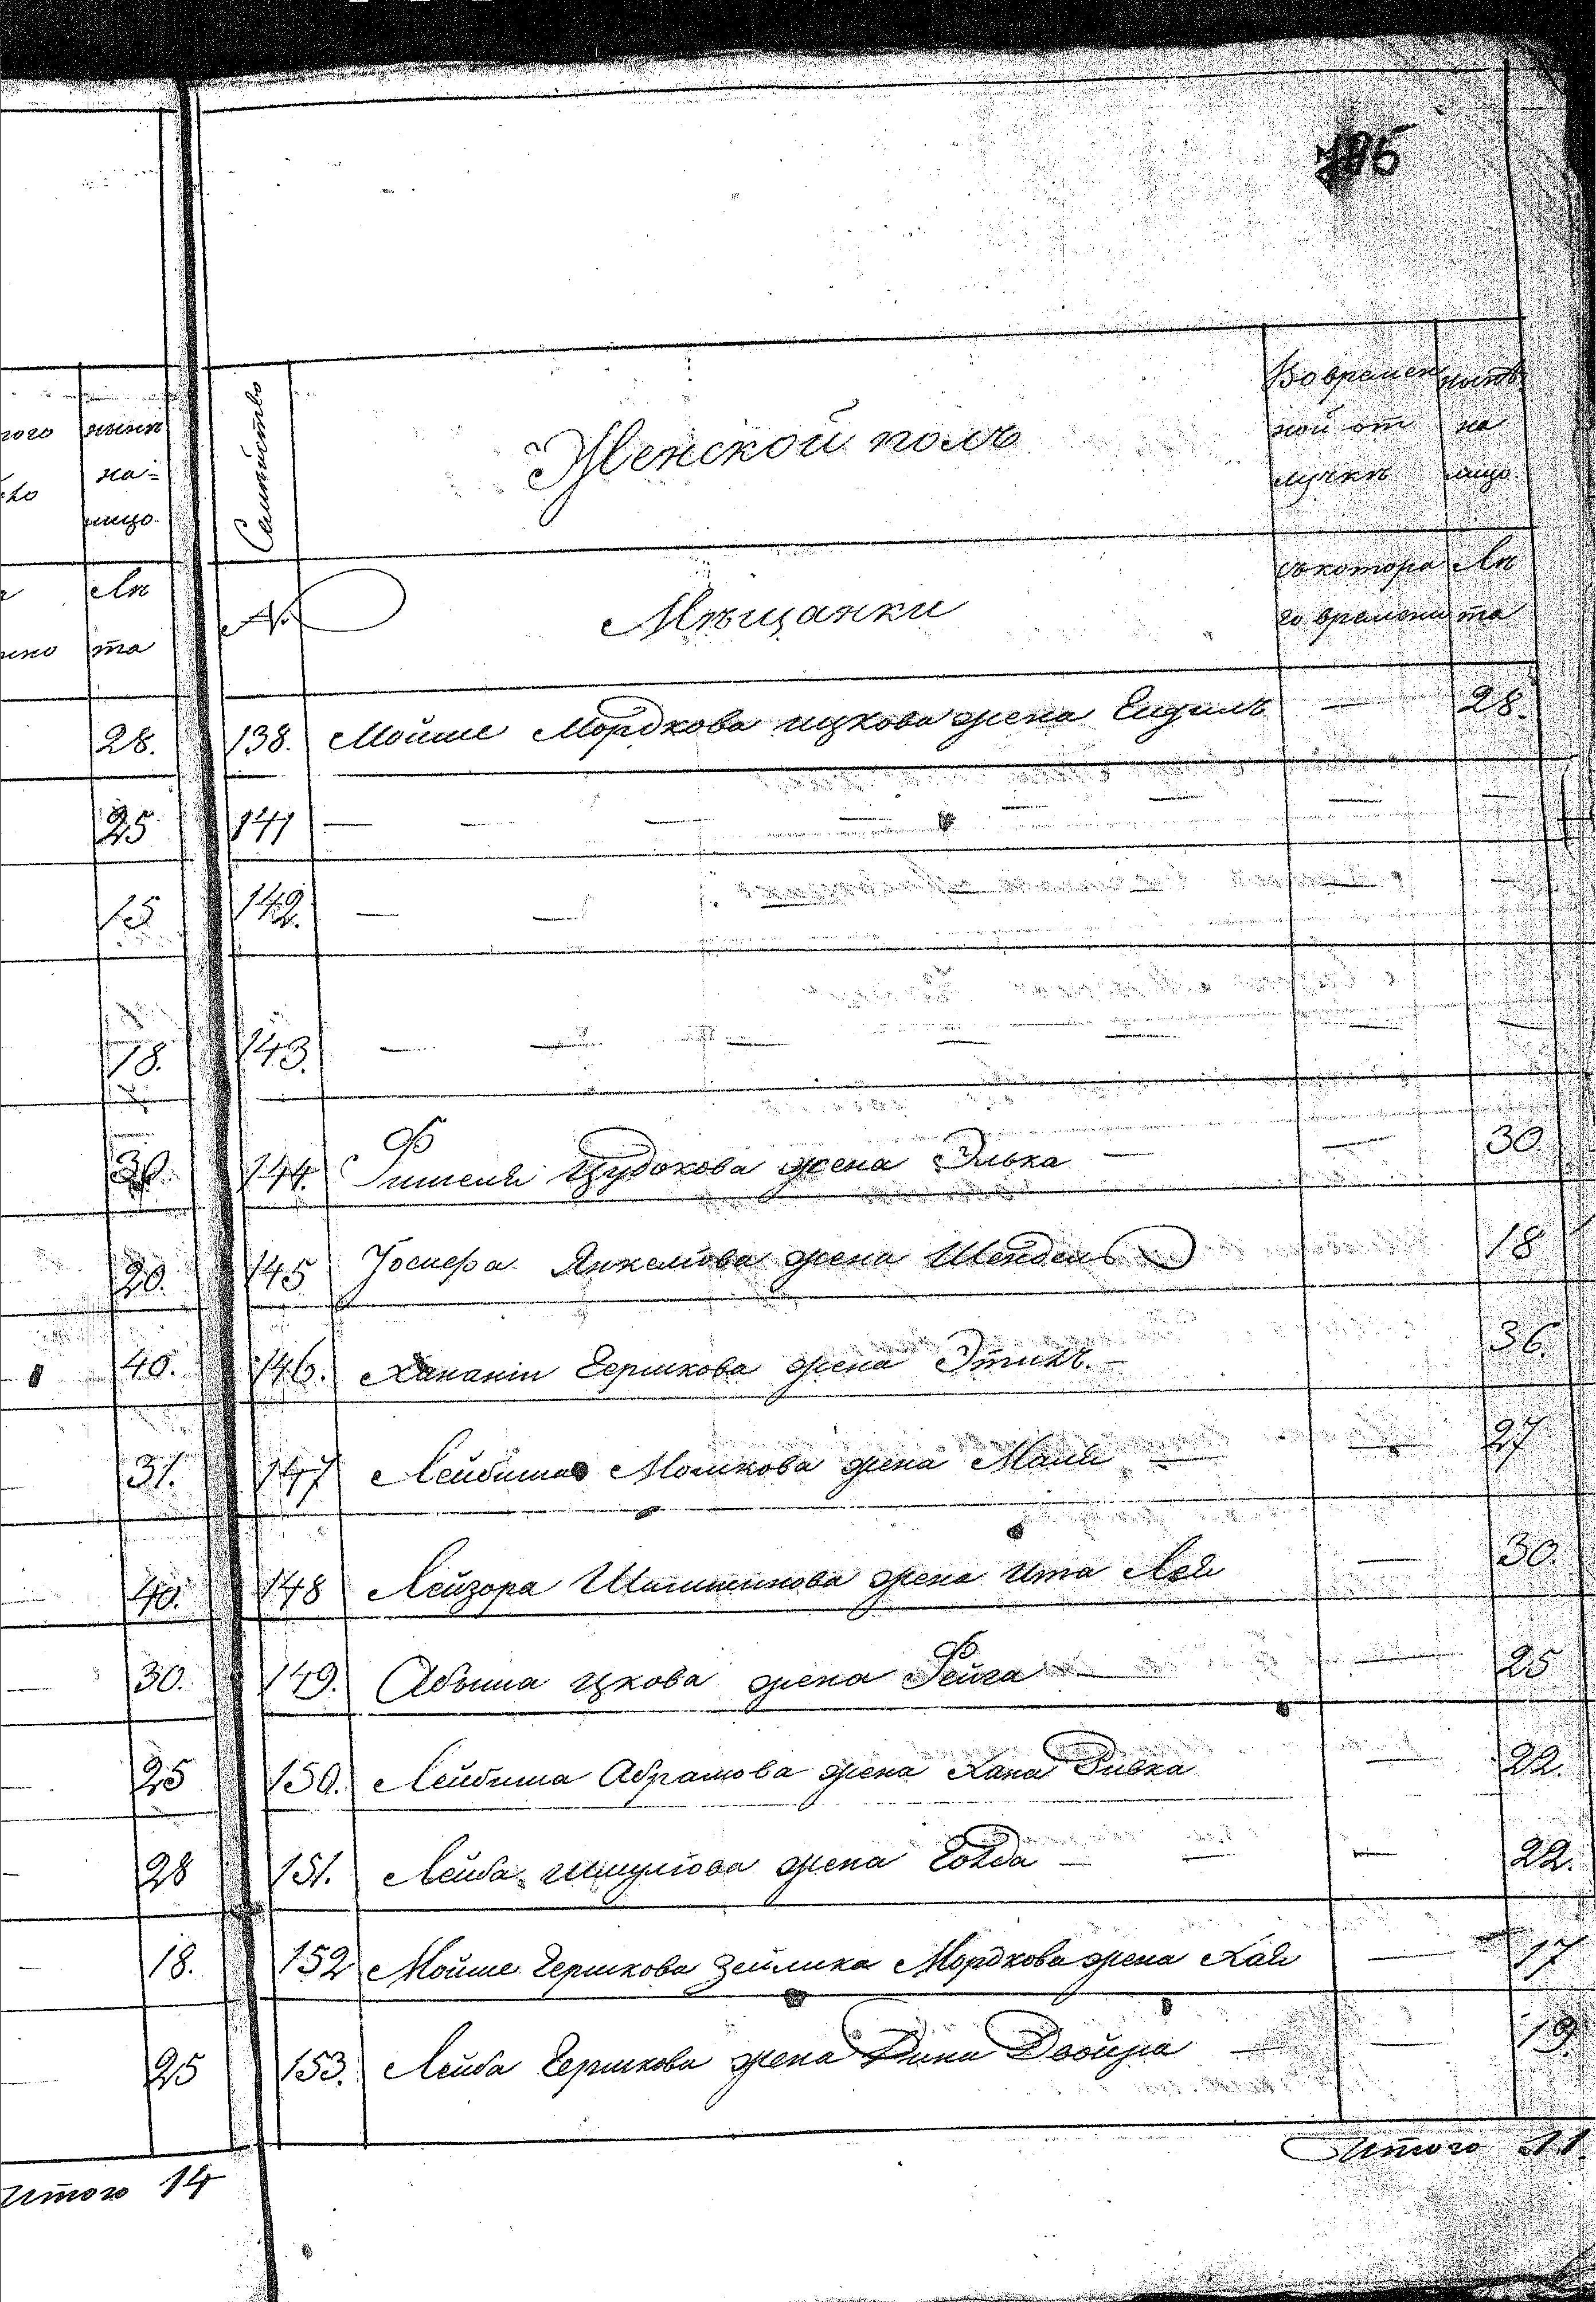 795
нынѣ
на=
лицо.
Лѣ
та
28.
25
15
18.
30.
20.
40.
31.
40.
30.
25
28
18.
25
итого 14
Семейство Женской полъ Во времен нынѣ
ной от на
лучкѣ лицо.
№ Мѣщанки съ котора Лѣ
го времени та
138. Мойше Мордкова ицкова жена Ейдиль — 28.
141 — — — — — — — —
142. — — — —
143. — — — — — — —
144. Фишеля Иудокова жена Элька — — 30.
145 Иосифа Янкелiова жена Шендель 18
146. Хананiи Гершкова жена Этиль. — 36.
147 Лейбиша Мошкова жена Маля — — 27
148 Лейзора Шлiомiнова жена Ита Лея — 30.
149. Абыша ицкова жена Фейга — — 25
150. Лейбиша Абрамова жена Хана Ривка — 22.
151. Лейба шмулiова жена Голда — — — 22.
152 Мойше Гершкова Зейлика Мордкова жена Хая — 17
153. Лейба Гершкова жена Дина Двойра — — 19.
Итого 11.